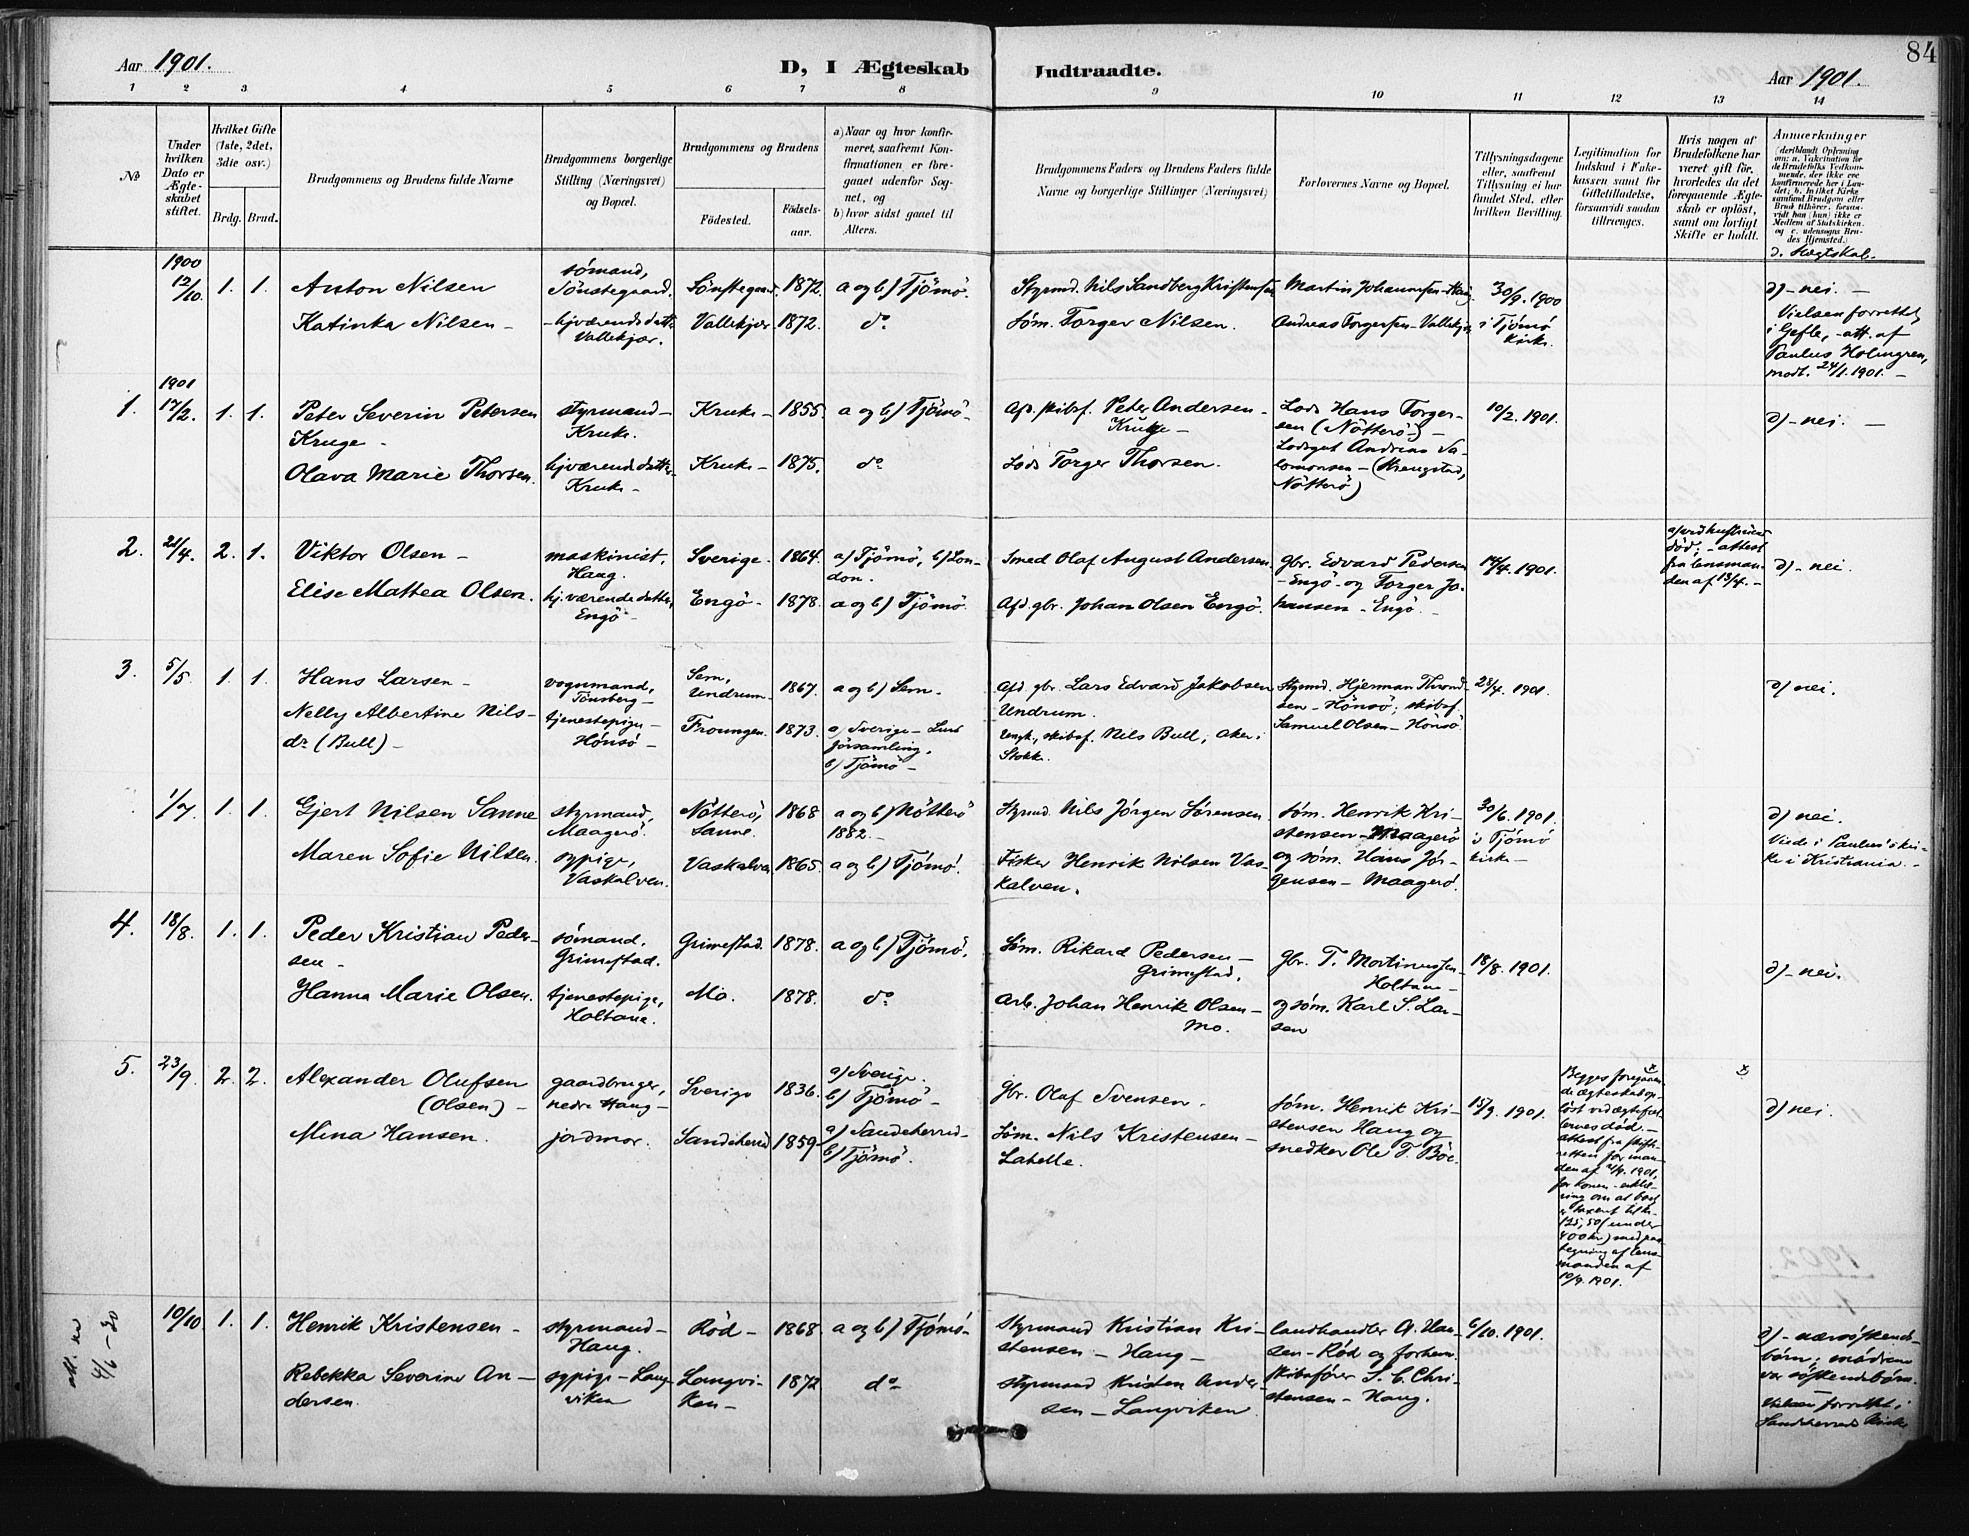 84
Aar 1901.
D, I Ægteskab Indtraadte.
Aar 1901.
1 2 3 4 5 6 7 8 9 10 11 12 13 14
No
Under
hvilken
Dato er
Ægte-
skabet
stiftet.
Hvilket Gifte
(1ste, 2det,
3die osv.)
Brdg. Brud.
Brudgommens og Brudens fulde Navne
Brudgommens borgerlige
Stilling (Næringsvei)
og Bopæl.
Brudgommens og Brudens
Födested.
Födsels-
aar.
a) Naar og hvor konfir-
meret, saafremt Kon-
firmationen er fore-
gaaet udenfor Sog-
net, og
b) hvor sidst gaaet til
Alters.
Brudgommens Faders og Brudens Faders fulde
Navne og borgerlige Stillinger (Næringsvei)
Forlovernes Navne og Bopæl.
Tillysningsdagene
eller, saafremt
Tillysning ei har
fundet Sted, efter
hvilken Bevilling.
Legitimation for
Indskud i Enke-
kassen samt for
Giftetilladelse,
forsaavidt saadan
tiltrænges.
Hvis nogen af
Brudefolkene har
været gift før,
hvorledes da det
foregaaende Ægte-
skab er oplöst,
samt om lovligt
Skifte er holdt.
Anmærkninger
(deriblandt Oplysning
om: a. Vakcination for
de Brudefolks Vedkom-
mende, der ikke ere
konfirmerede her i Lan-
det; b. hvilket Kirke-
samfund Brudgom eller
Brud tilhörer, forsaa-
vidt han (hun) ikke er
Medlem af Statskirken,
og c. udensogns Bru-
des Hjemsted.)
d. Slægtskab.
1900
12/10. 1. 1. Anton Nilsen
sömand,
Sönstegaard.
Sönstegaard. 1872. a og b) Tjömö.
Styrmd. Nils Sandberg Kristensen
Martin Johannesen
30/9. 1900
i Tjömö
Kirke.
d) - nei. -
Vielsen forrettet
i Gefle, - att. af
Paulus Holmgren,
modt. 24/1. 1901. -
Katinka Nilsen -
- hjværende datt.
Vallekjær.
Vallekjær 1872. do
Söm. Torger Nilsen.
Andreas Torgersen - Vallekjær
1901
1. 17/2. 1. 1. Peter Severin Petersen
Kruge -
styrmand -
Kruke.
Kruke - 1855 a og b) Tjömö -
Afd. skibsf. Peter Andersen -
Kruge -
Lods Hans Torger-
sen (Nötterö) -
Lodsget Andreas Sa-
lomonsen - (Krengstad,
Nötterö)
10/2. 1901.
d) - nei. -
Olava Marie Thorsen.
hjværende datter
Kruke -
Kruke - 1875. do
Lods Torger Thorsen.
2. 21/4. 2. 1. Viktor Olsen -
maskinist,
Haug.
Sverige. 1864. a) Tjömö, b) Lon-
don.
Smed Olaf August Andersen.
gbr. Edvard Pedersen
- Engö - og Torger Jo-
hansen - Engö. -
14/4. 1901.
a) ved hustruens
död; - attest
fra lensman-
den af 13/4. -
d) - nei.
Elise Mattea Olsen.
hj.værende datter,
Engö -
Engö - 1878. a og b) Tjömö.
Afd. gbr. Johan Olsen Engö.
3. 5/5. 1. 1. Hans Larsen -
vognmand,
Tönsberg -
Sem,
Undrum - 1867. a og b) Sem.
Afd. gbr. Lars Edvard Jakobsen
Undrum.
Styrmd. Hjerman Thrond-
sen - Hönsö; skibsf.
Samuel Olsen - Hönsö.
28/4. 1901.
d) nei.
Nelly Albertine Nils-
dr (Bull) -
tjenestepige -
Hönsö -
1873. a) Sverige -
församling,
b) Tjömö -
Ungk., skibsf. Nils Bull, Aker i
Stokke.
1/7 1. 1. Gjert Nilsen Sanne
styrmand,
Maagerö.
Nötterö,
Sanne. 1868 a og b) Nötterö
1882. -
Styrmd. Nils Jörgen Sörensen
söm. Henrik Kri-
stensen - Maagerö
og söm. Hans Jör-
gensen - Maagerö.
30/6. 1901.
i Tjömö
kirke -
d) nei.
Viede i Paulus's kir-
ke i Kristiania. -
Maren Sofie Nilsen.
sypige,
Vaskalven.
Vaskalven 1865. a og b) Tjömö.
Fisker Henrik Nilsen Vas-
kalven.
4. 18/8. 1. 1. Peder Kristian Peder-
sen -
sömand,
Grimestad.
Grimestad. 1878. a og b) Tjömö.
Söm. Rikard Pedersen -
Grimestad.
gbr. T. Martinussen -
Holtane -
og söm. Karl S. Lar-
sen
18/8. 1901.
d) - nei.
Hanna Marie Olsen.
tjenestepige,
Holtane.
Mo. 1878. do
Arb. Johan Henrik Olsen -
Mo.
5. 23/9. 2. 2. Alexander Olufsen
(Olsen) -
gaardbruger,
nedre Haug -
Sverige 1836. a) Sverige.
b) Tjömö -
gbr. Olaf Svensen.
söm. Henrik Kri-
stensen Haug og
snedker Ole T. Böe.
15/9. 1901.
x
Begges foregaaen-
de ægteskab op-
löst ved ægtefæl-
lernes död. -
attest fra skifte-
retten for man-
den af 21/9. 1901,
for konen - erklæ-
ring om at boet
er taxeret til kr.
125,50 (under
400 kr.) med paa-
tegning af lens-
manden af
10/9. 1901.
x
d) nei.
Mina Hansen.
jordmor.
Sandeherred 1859. a) Sandeherred -
b) Tjömö.
Söm. Nils Kristensen -
Lahelle.
1902.
att. nr
4/6 - 20
10/10. 1. 1. Henrik Kristensen -
styrmand -
Haug.
Röd - 1868. a og b) Tjömö -
Styrmand Kristian Kri-
stensen - Haug -
landhandler A. Han-
sen - Röd og forhen.
skibsförer S. C. Chri-
stensen - Haug.
6/10. 1901.
d) - næssöskende-
börn; mödrene
var söskendebörn.
Vielsen forrettet i
Sandeherreds Kirke
Rebekka Severine An-
dersen.
sypige - Lang-
viken
Langvi-
ken - 1872 do
styrmand Kristen Ander-
sen - Langviken.